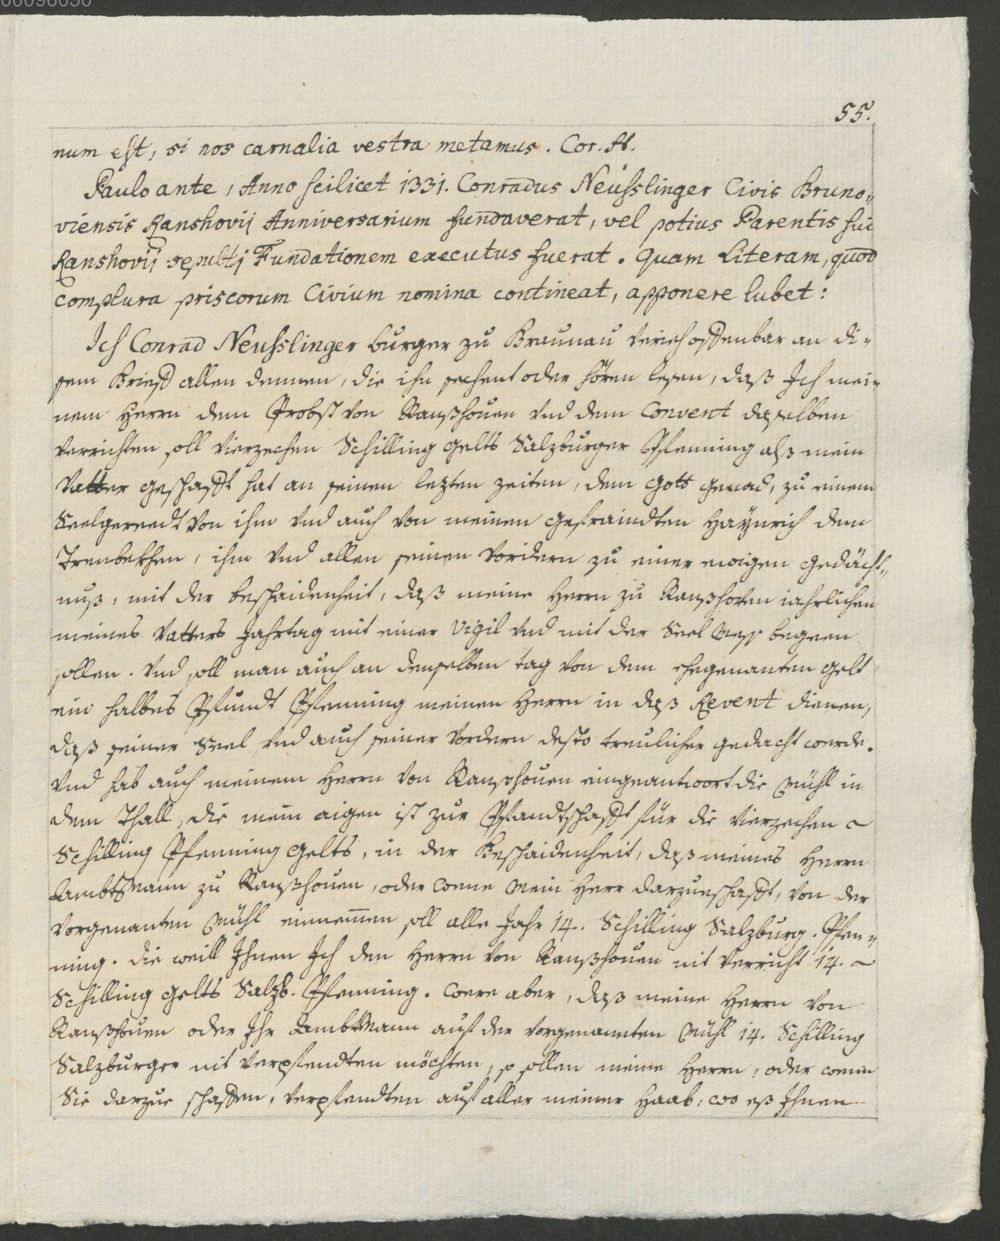 00096030
55.
num est, si nos carnalia vestra metamus. Cor. A.
Paulo ante, Anno scilicet 1331. Conradus Neusslinger Civis Bruno-
viensis Ranshovij Anniversarium fundaverat, vel potius Parentis sui
Ranshovij sepulti Fundationem executus fuerat. Quam Literam, quod
complura priscorum Civium nomina contineat, apponere lubet:
Ich Conrad Neusslinger burger zu Braunau Veriech offenbar an di-
sem Brieff allen dennen, die ihn sechent oder hören lesen, daß Ich mei-
nem Herrn dem Probst von Ranßhouen und dem Convent daselben
Verrichten soll Vierzechen Schilling gelts Salzburger Pfenning alß mein
Vatter geschafft hat an seinen lezten zeiten, dem Gott genad, zu einem
Seelgereedt von ihm und auch von meinen gefraindten Haÿnrich dem
Trenbekhen, ihm und allen seinen Vordern zu einer ewigen gedächt-
nuß, mit der beschaidenheit, daß meine Herrn zu Ranßhouen iahrlichen
meines Vatters Jahrtag mit einer Vigil und mit der Seel Mess begeen
sollen. Und soll man auch an demselben tag von dem ehegenanten gelt
ein halbes Pfundt Pfenning meinen Herrn in daß Revent dienen,
daß seiner Seel und auch seiner Vordern desto treulicher gedacht werde.
Und hab auch meinem Herrn von Ranßhouen eingeantwort die Mühl in
dem Thall, die mein aigen ist zur Pfandtschafft für die Vierzechen ~
Schilling Pfenning gelts, in der Beschaidenheit, daß meines Herrn
Ambtmann zu Ranßhouen, oder weme Mein Herr darzueschafft, von der
Vorgenanten Mühl einnemen soll alle Jahr 14. Schilling Salzburg. Pfen-
ning. die weill Ihnen Ich den Herrn von Ranßhouen nit Verricht 14. ~
Schilling gelts Salzb. Pfenning. Were aber, daß meine Herrn von
Ranßhouen oder Ihr Ambtmann auf der Vorgenannten Mühl 14. Schilling
Salzburger nit Verpfendten möchten, so sollen meine Herrn, oder weme
Sie darzue schaffen, Verpfendten auf aller meiner Haab, wo eß Ihnen